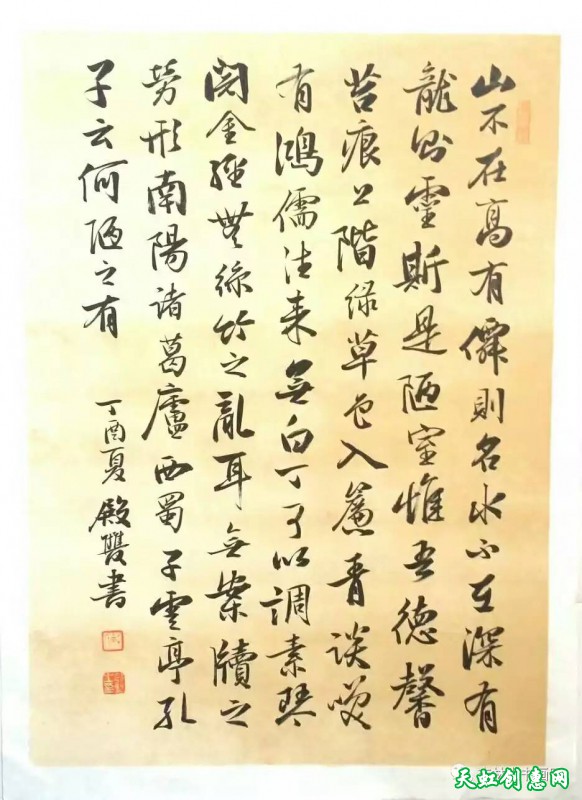 山不在高有僊則名水不在深有
龍則靈斯是陋室惟吾德馨
苔痕上階綠草色入簾青談笑
有鴻儒往来無白丁可以調素琴
閱金經無絲竹之亂耳無案牘之
勞形南陽諸葛廬西蜀子雲亭孔
子云何陋之有
丁酉夏殿雙書
天虹创意网